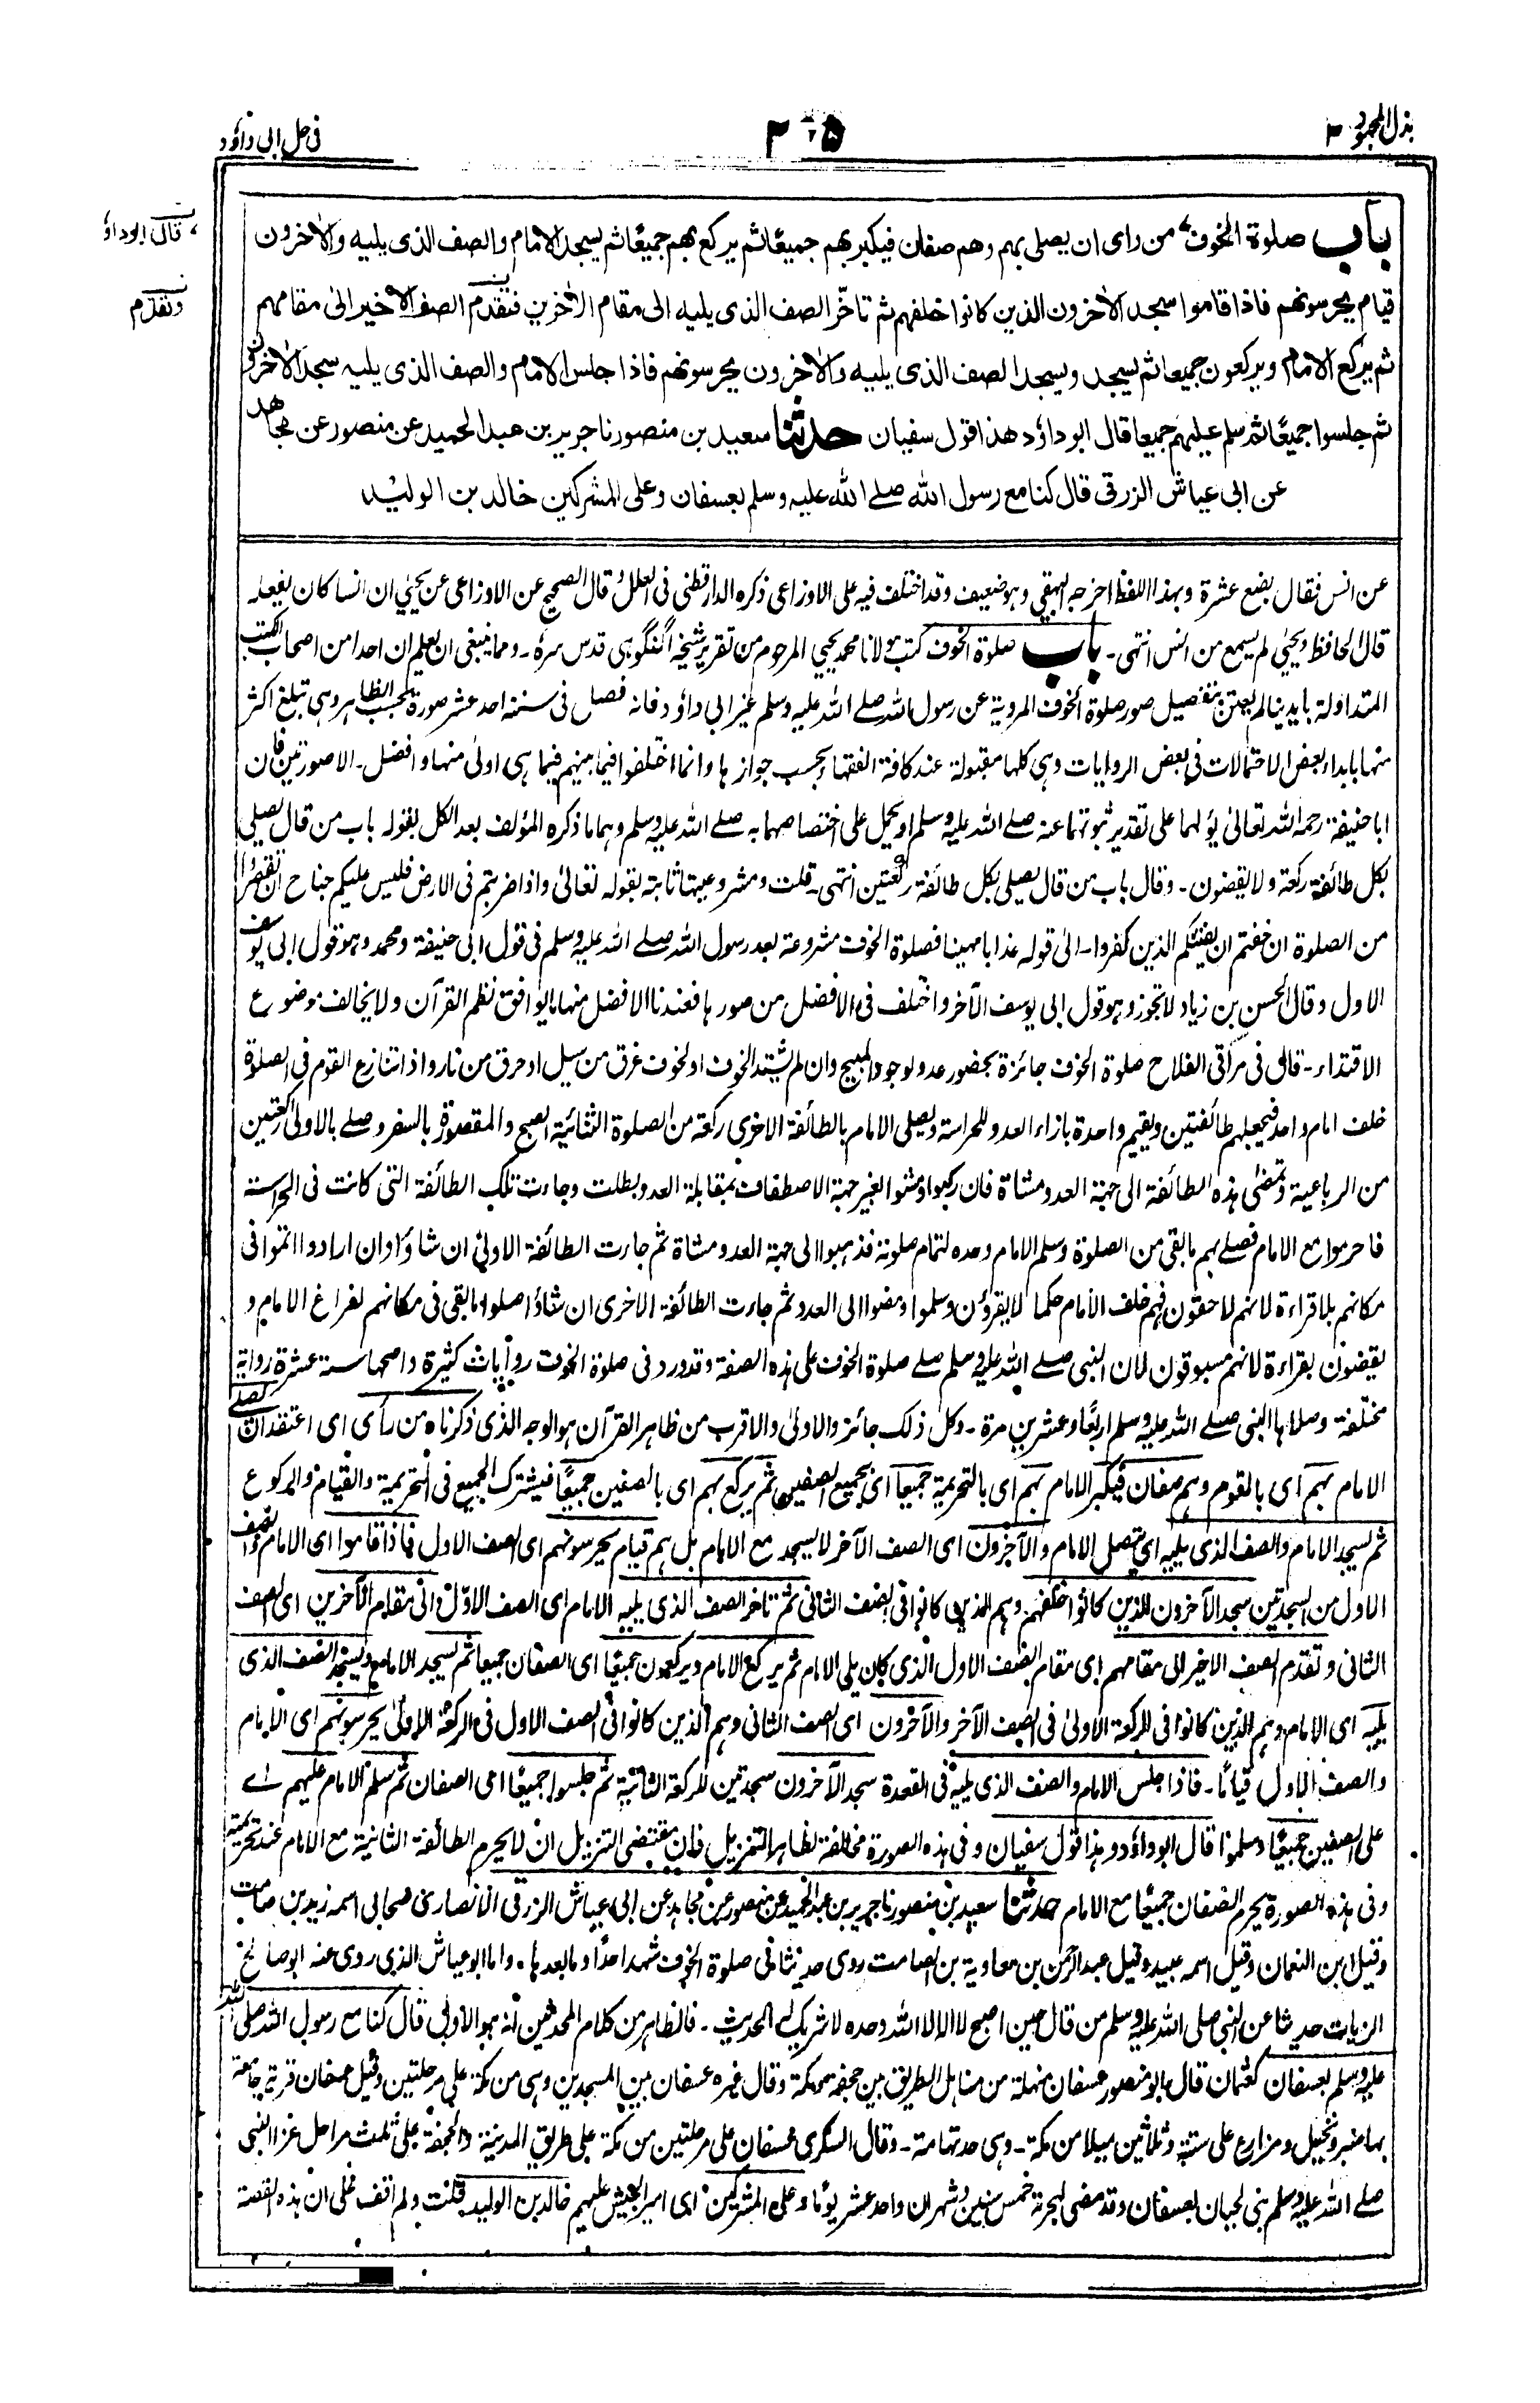 بذل المجهود ٢
٢٤٥
فى حل ابى داؤد
باب صلوة الخوف من راى ان يصلى بهم وهم صفان فيكبر بهم جميعًا ثم يركع بهم جميعًا ثم يسجد الامام والصف الذى يليه والاٰخرون
قال ابوداؤ
قيام يحرسونهم فاذا قاموا سجد الاٰخرون الذين كانوا خلفهم ثم تاخّر الصف الذى يليه الى مقام الاٰخرين فتقدم الصف الاخير الىٰ مقامهم
وتقدم
ثم يركع الامام ويركعون جميعا ثم يسجد ويسجد الصف الذى يليه والاٰخرون يحرسونهم فاذا جلس الامام والصف الذى يليه سجد الاٰخرون
ثم جلسوا جميعًا ثم سلم عليهم جميعا قال ابوداؤد هذا قول سفيان حدثنا سعيد بن منصور نا جرير بن عبد الحميد عن منصور عن مجاهد
عن ابى عياش الزرقى قال كنا مع رسول الله صلے الله عليه وسلم بعسفان وعلى المشركين خالد بن الوليد
عن انس فقال بضع عشرة وبهذا اللفظ اخرجه البيهقي وهو ضعيف وقد اختلف فيه على الاوزاعى ذكره الدارقطنى فى العلل وقال الصحيح عن الاوزاعى عن يحيىٰ ان انسا كان يفعله
قال الحافظ ويحيىٰ لم يسمع من انس انتهى۔ باب صلوة الخوف كتب مولانا محمد يحيى المرحوم من تقرير شيخه الگنگوہى قدس سره۔ ومما ينبغى ان يعلم ان احدا من اصحاب الكتب
المتداولة بايدينا لم يعتن بتفصيل صور صلوة الخوف المروية عن رسول الله صلے الله عليه وسلم غير ابى داؤد فانه فصل فى سننه احد عشر صورة بحسب الظاهر وهى تبلغ اكثر
منها بابداء بعض الاحتمالات فى بعض الروايات وهى كلها مقبولة عند كافة الفقهاء بحسب جوازها وانما اختلفوا فيما بينهم فيما هى اولىٰ منها وافضل۔ الا صورتين فان
ابا حنيفة رحمه الله تعالىٰ يؤلهما على تقدير ثبوتهما عنه صلے الله عليه وسلم او يحمل على اختصاصهما به صلے الله عليه وسلم وهما ما ذكره المؤلف بعد الكل بقوله باب من قال يصلى
بكل طائفة ركعة ولا يقضون۔ وقال باب من قال يصلى بكل طائفة ركعتين انتهى۔ قلت ومشروعيتها ثابتة بقوله تعالىٰ واذا ضربتم فى الارض فليس عليكم جناح ان تقصروا
من الصلوة ان خفتم ان يفتنكم الذين كفروا۔ الىٰ قوله عذابا مهينا فصلوة الخوف مشروعة بعد رسول الله صلے الله عليه وسلم فى قول ابى حنيفة ومحمد وهو قول ابى يوسف
الاول وقال الحسن بن زياد لا تجوز وهو قول ابى يوسف الآخر واختلف فى الافضل من صورها فعندنا الافضل منها ما يوافق نظم القرآن ولا يخالف موضوع
الاقتداء۔ قال فى مراقى الفلاح صلوة الخوف جائزة بحضور عدو لوجود المبيح وان لم يشتد الخوف او لخوف غرق من سيل او حرق من نار واذا تنازع القوم فى الصلوة
خلف امام واحد فيجعلهم طائفتين ويقيم واحدة بازاء العدو للحراسة ويصلى الامام بالطائفة الاخرى ركعة من الصلوة الثنائية الصبح والمقصورة بالسفر وصلے بالاولىٰ ركعتين
من الرباعية وتمضى هذه الطائفة الى جهة العدو مشاة فان ركبوا او مشوا لغير جهة الاصطفاف بمقابلة العدو بطلت وجاءت تلك الطائفة التى كانت فى الحراسة
فاحرموا مع الامام فصلے بهم ما بقى من الصلوة وسلم الامام وحده لتمام صلوته فذهبوا الى جهة العدو مشاة ثم جاءت الطائفة الاولىٰ ان شاؤا وان ارادوا اتموا فى
مكانهم بلا قراءة لانهم لاحقون فهم خلف الامام حكما لا يقرؤن وسلموا ومضوا الى العدو ثم جاءت الطائفة الاخرى ان شاؤا صلوا ما بقى فى مكانهم لفراغ الامام و
يقضون بقراءة لانهم مسبوقون لان النبى صلے الله عليه وسلم صلے صلوة الخوف على هذه الصفة وقد ورد فى صلوة الخوف روايات كثيرة واصحها ستة عشرة رواية
مختلفة وصلاها النبى صلے الله عليه وسلم اربعًا وعشرين مرة۔ وكل ذلك جائز والاولىٰ والاقرب من ظاهر القرآن هو الوجه الذى ذكرناه من رأى اى اعتقد ان يصلے
الامام بهم اى بالقوم وهم صفان فيكبر الامام بهم اى بالتحريمة جميعا اى بجميع الصفين ثم يركع بهم اى بالصفين جميعًا فيشترك الجميع فى التحريمة والقيام والركوع
ثم يسجد الامام والصف الذى يليه اى يتصل الامام والآخرون اى الصف الآخر لا يسجد مع الامام بل هم قيام يحرسونهم اى الصف الاول فاذا قاموا اى الامام والصف
الاول من السجدتين سجد الآخرون الذين كانوا خلفهم وهم الذين كانوا فى الصف الثانى ثم تاخر الصف الذى يليه الامام اى الصف الاول الى مقام الآخرين اى الصف
الثانى وتقدم الصف الاخير الى مقامهم اى مقام الصف الاول الذى كان يلى الامام ثم يركع الامام ويركعون جميعًا اى الصفان جميعا ثم يسجد الامام ويسجد الصف الذى
يليه اى الامام وهم الذين كانوا فى الركعة الاولىٰ فى الصف الآخر والآخرون اى الصف الثانى وهم الذين كانوا فى الصف الاول فى الركعة الاولىٰ يحرسونهم اى الامام
والصف الاول قيامًا۔ فاذا جلس الامام والصف الذى يليه فى القعدة سجد الآخرون سجدتين للركعة الثانية ثم جلسوا جميعًا اى الصفان ثم سلم الامام عليهم اے
على الصفين جميعًا وسلموا قال ابوداؤد وهذا قول سفيان وفى هذه الصورة مخالفة لظاهر التنزيل فان مقتضى التنزيل ان لا يحرم الطائفة الثانية مع الامام عند تحريمته
وفى هذه الصورة يحرم الصفان جميعًا مع الامام حدثنا سعيد بن منصور نا جرير بن عبد الحميد عن منصور عن مجاهد عن ابى عياش الزرقى الانصارى صحابى اسمه زيد بن صامت
وقيل ابن النعمان وقيل اسمه عبيد وقيل عبد الرحمن بن معاوية بن الصامت روى حديثا فى صلوة الخوف شهد احدًا وما بعدها۔ واما ابو عياش الذى روى عنه ابو صالح
الزيات حديثا عن النبى صلى الله عليه وسلم من قال حين اصبح لا اله الا الله وحده لا شريك له الحديث۔ فالظاهر من كلام المحدثين انه هو الاول قال كنا مع رسول الله صلى الله
عليه وسلم بعسفان كعثمان قال ابو منصور عسفان منهلة من مناهل الطريق بين جحفة ومكة وقال غيره عسفان بين المسجدين وهى من مكة على مرحلتين وقيل عسفان قرية جامعة
بها منبر ونخيل ومزارع على ستة وثلاثين ميلا من مكة۔ وهى حد تهامة۔ وقال السكرى عسفان على مرحلتين من مكة على طريق المدينة والجحفة على ثلث مراحل غزا النبى
صلے الله عليه وسلم بنى لحيان بعسفان وقد مضى لهجرته خمس سنين وشهران واحد عشر يومًا وعلى المشركين اى امير الجيش عليهم خالد بن الوليد قلت ولم اقف على ان هذه القصة